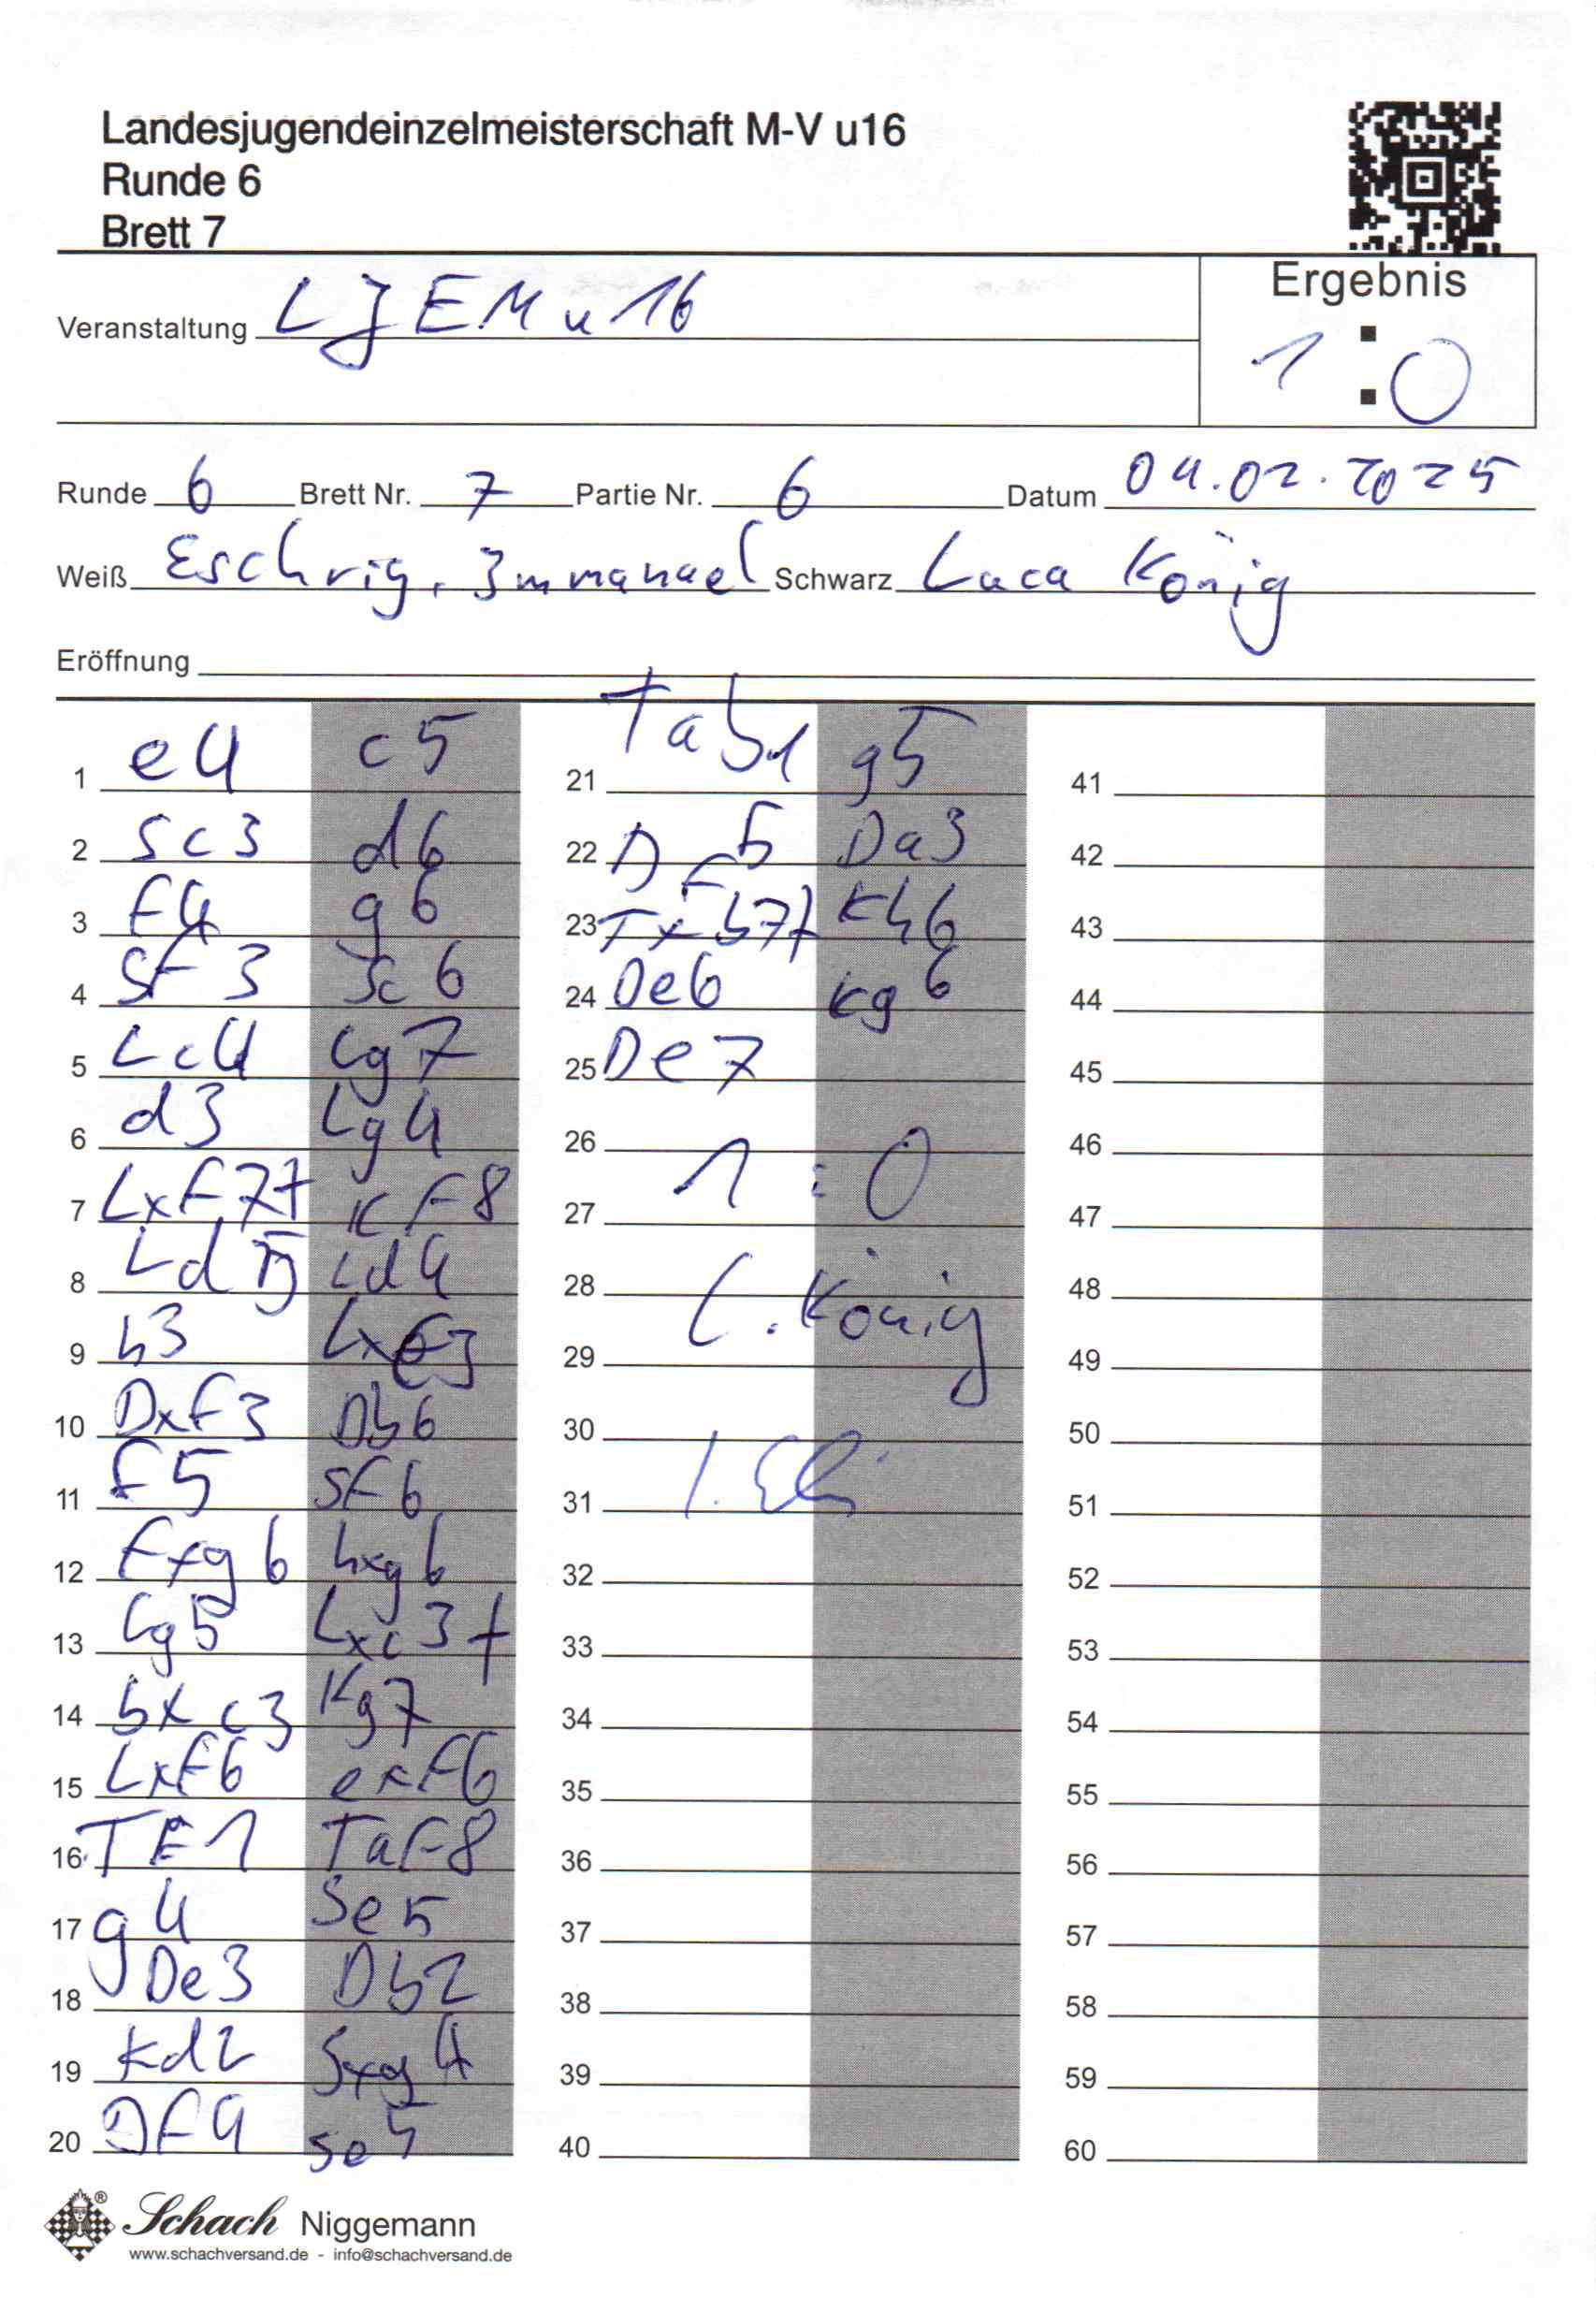 Landesjugendeinzelmeisterschaft M-V u16
Runde 6
Brett 7
Ergebnis
1 : 0
Veranstaltung LJEM u 16
Runde 6 Brett Nr. 7 Partie Nr. 6 Datum 04.02.2025
Weiß Eschrig, Immanuel Schwarz Luca König
Eröffnung
1 e4 c5
2 Sc3 d6
3 f4 g6
4 Sf3 Sc6
5 Lc4 Lg7
6 d3 Lg4
7 Lxf7+ Kf8
8 Ld5 Ld4
9 h3 Lxf3
10 Dxf3 Db6
11 f5 Sf6
12 fxg6 hxg6
13 Lg5 Lxc3+
14 bxc3 Kg7
15 Lxf6 exf6
16 Tf1 Taf8
17 g4 Se5
18 De3 Db2
19 Kd2 Sxg4
20 Df4 Se5
21 Tab1 g5
22 Df5 Da3
23 Txb7+ Kh6
24 De6 Kg6
25 De7
26
27 1 : 0
28
29 L. König
30
31
32
33
34
35
36
37
38
39
40
41
42
43
44
45
46
47
48
49
50
51
52
53
54
55
56
57
58
59
60
Schach Niggemann
www.schachversand.de - info@schachversand.de